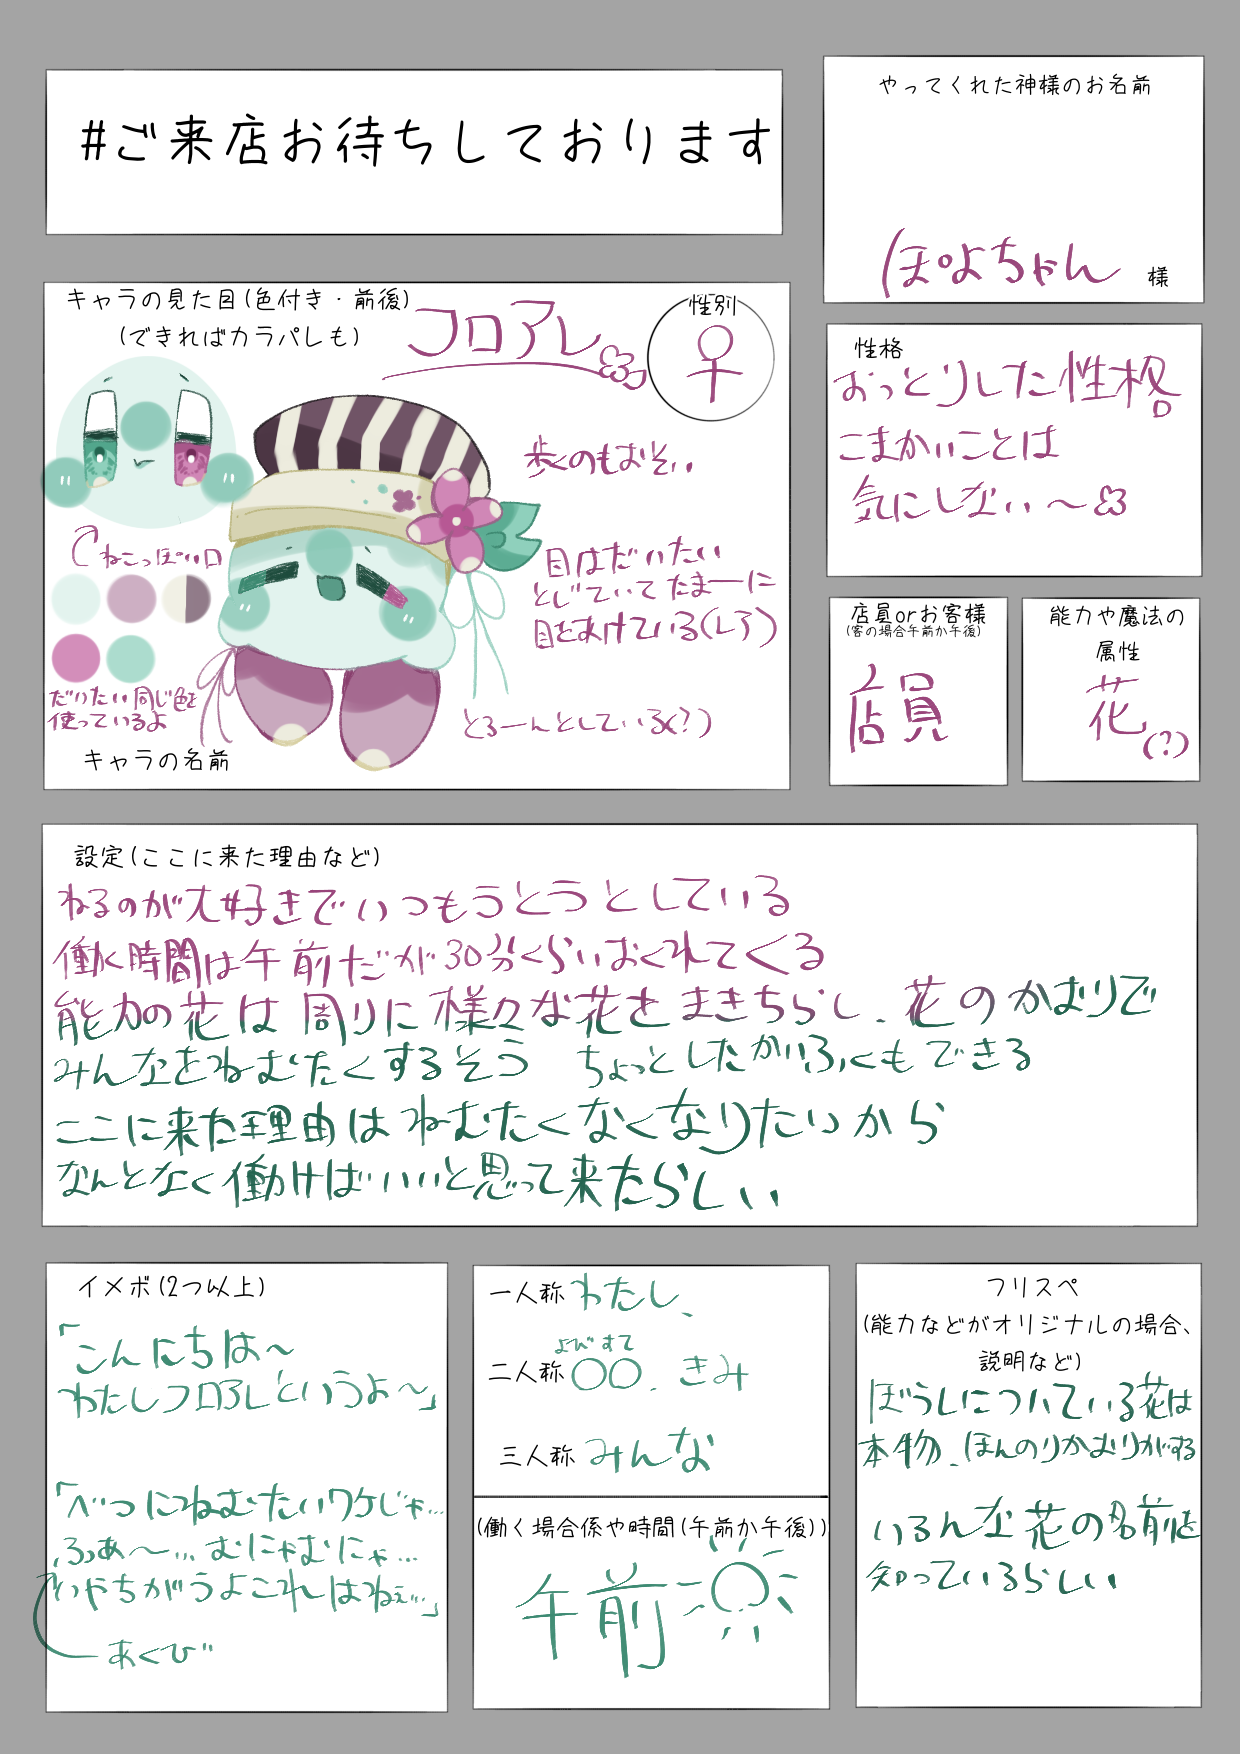 #ご来店お待ちしております
やってくれた神様のお名前
ぽよちゃん 様
キャラの見た目(色付き・前後)
(できればカラパレも)
フロアレ
性別
♀
歩くのもおそい
目はだいたい
とじていてたまーに
目をあけている(レア)
ねこっぽい口
だいたい同じ色を
使っているよ
とろーんとしている(?)
キャラの名前
性格
おっとりした性格
こまかいことは
気にしない〜
店員orお客様
(客の場合午前か午後)
店員
能力や魔法の
属性
花
(?)
設定(ここに来た理由など)
ねるのが大好きでいつもうとうとしている
働く時間は午前だが30分くらいおくれてくる
能力の花は周りに様々な花をまきちらし、花のかおりで
みんなをねむたくするそう ちょっとしたかいふくもできる
ここに来た理由はねむたくなくなりたいから
なんとなく働けばいいと思って来たらしい
イメボ(2つ以上)
「こんにちは〜
わたしフロアレというよ〜」
「べつにねむたいワケじゃ…
ふぁあ〜… むにゃむにゃ…
いやちがうよこれはねぇ…」
あくび
一人称 わたし、
よびすて
二人称 〇〇、きみ
三人称 みんな
(働く場合係や時間(午前か午後))
午前
フリスペ
(能力などがオリジナルの場合、
説明など)
ぼうしについている花は
本物、ほんのりかおりがする
いろんな花の名前を
知っているらしい